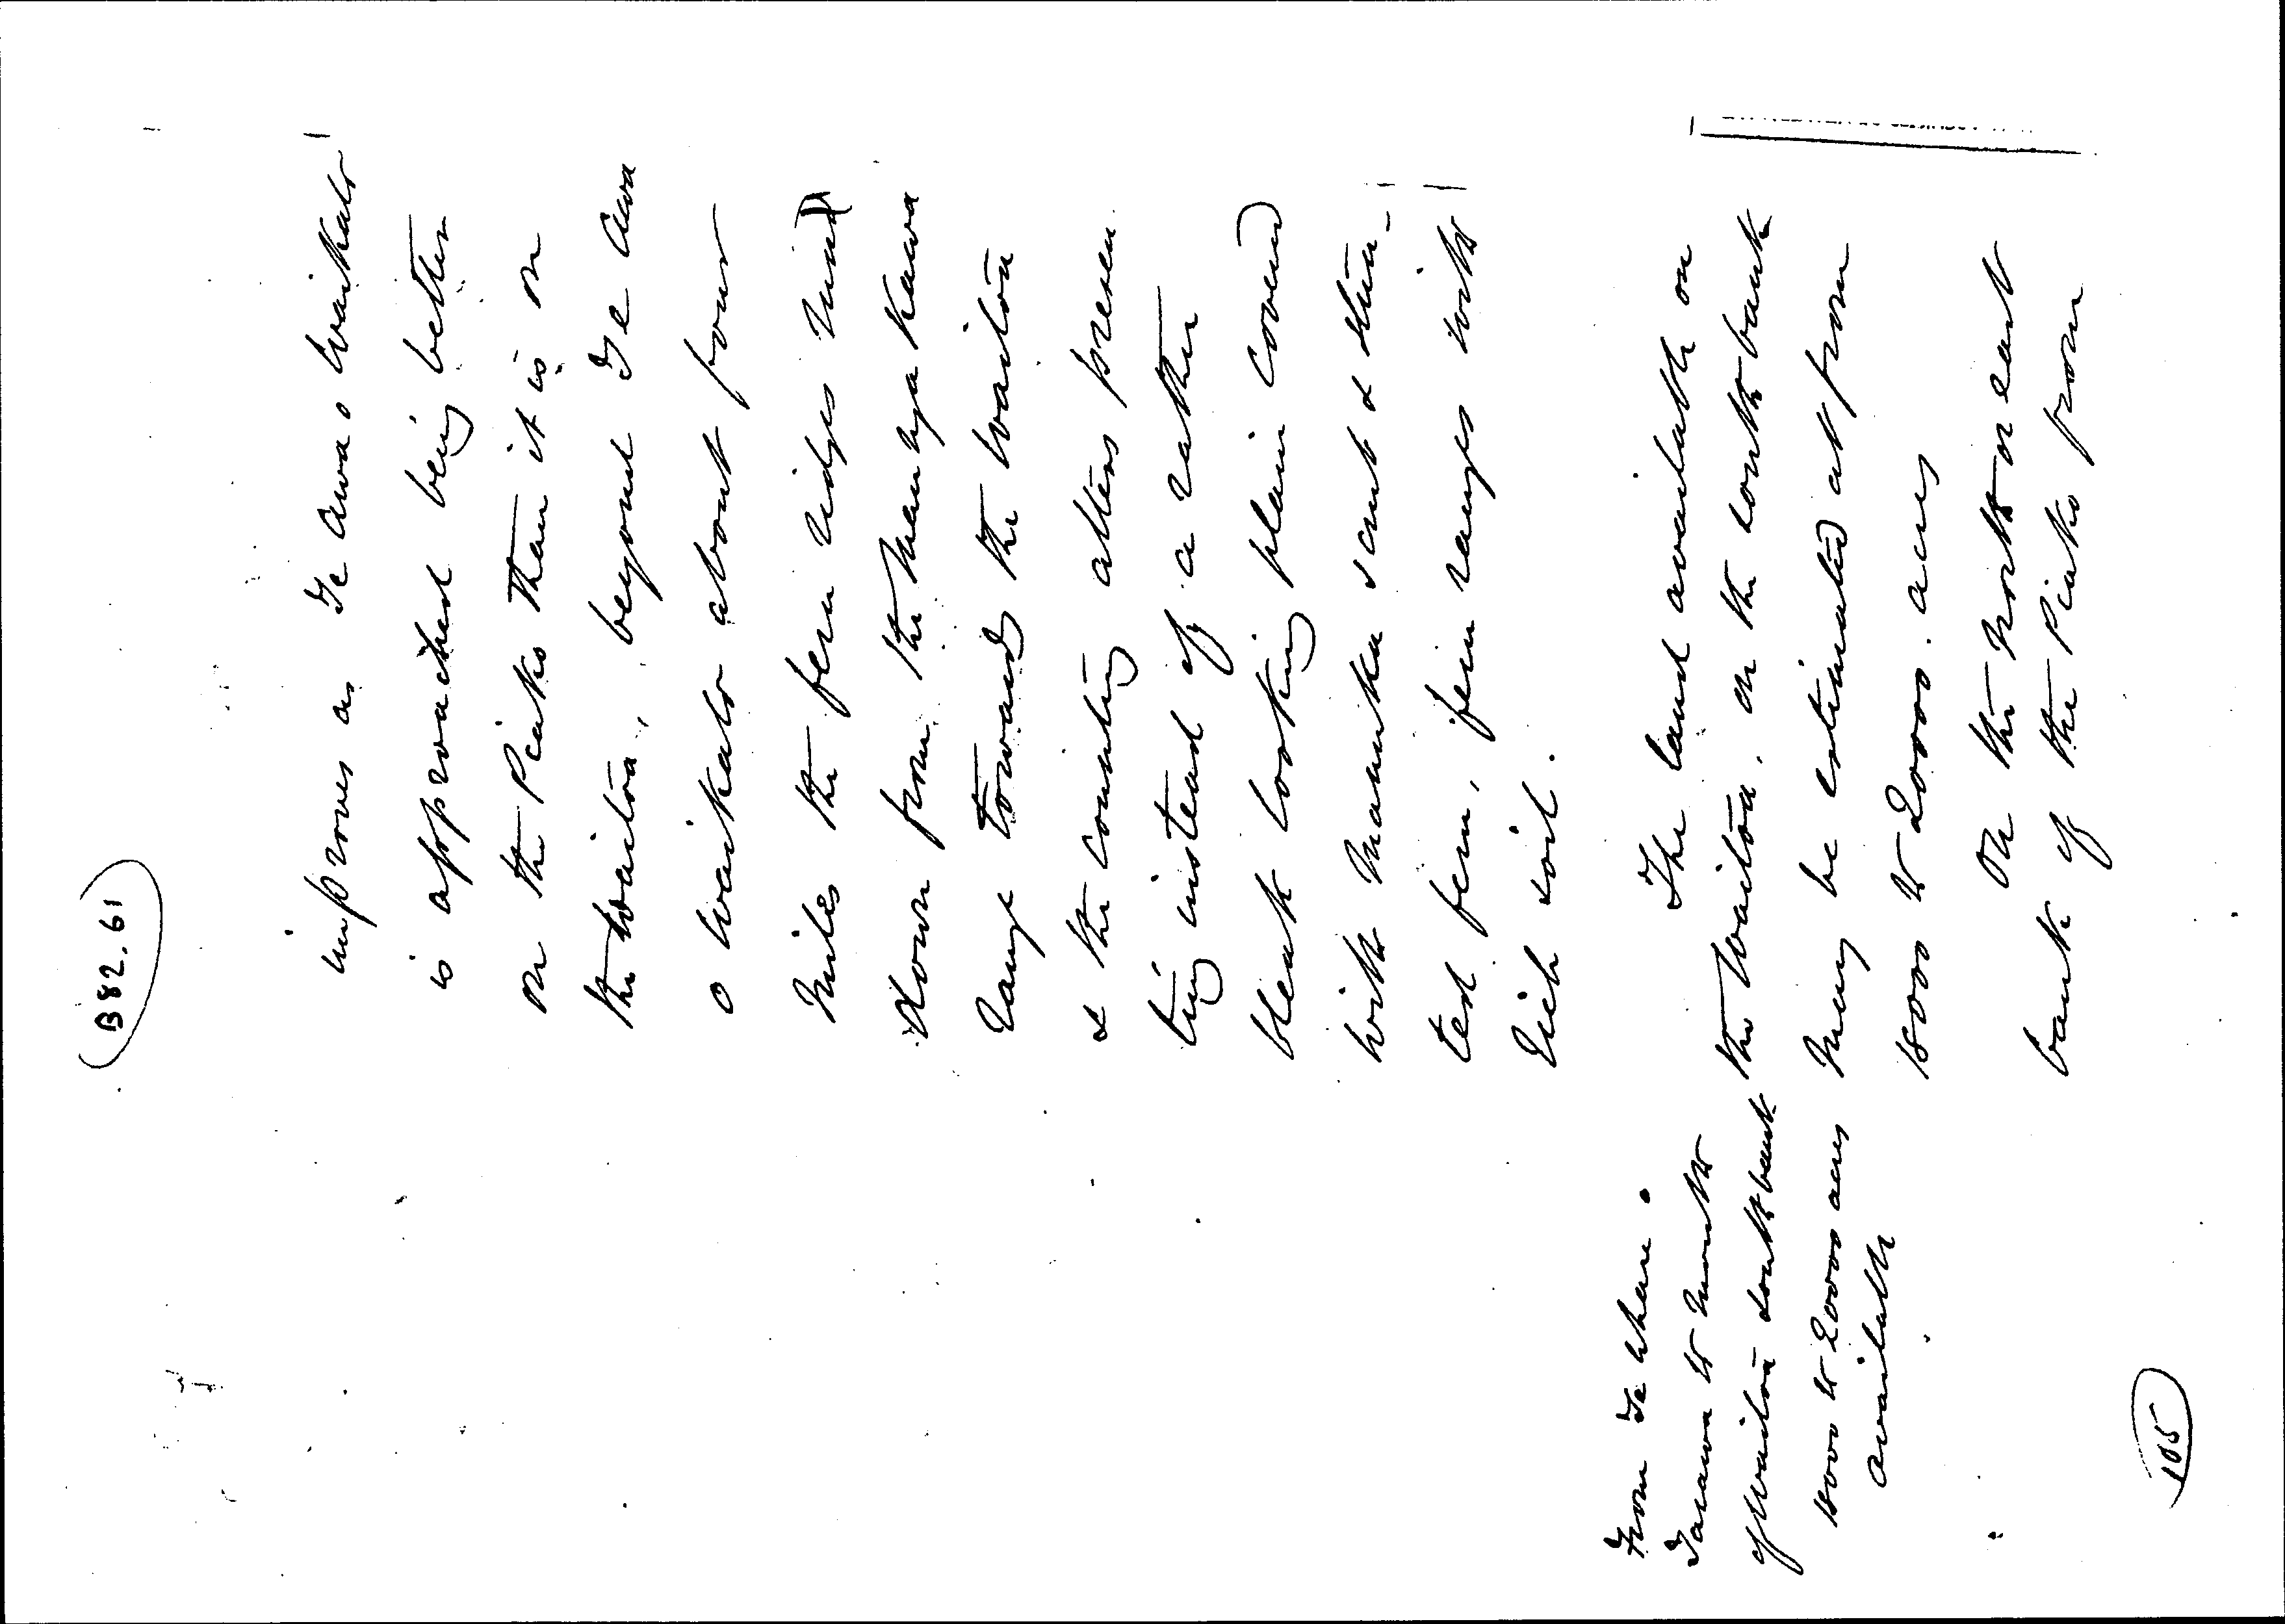 B82.61
improves as Te Awa o Waikato
is approached being better
on the Piako than it is on
the Waitoa, beyond Te Awa
o Waikato about four
miles the fern ridges wind
down from the Maungakawa
range towards the Waitoa
& the country alters presen
ting instead of a rather
bleak looking plain covered
with Manuka scrub & stun-
ted fern, fern ranges with
rich soil.
The land available on
the Waitoa, on the south bank
may be estimated at from
1800 to 2000. acres
On the north or east
bank of the Piako from
From Te
Tarawa to mouth
of Waitoa south bank
1800 to 2000 acres
available
105